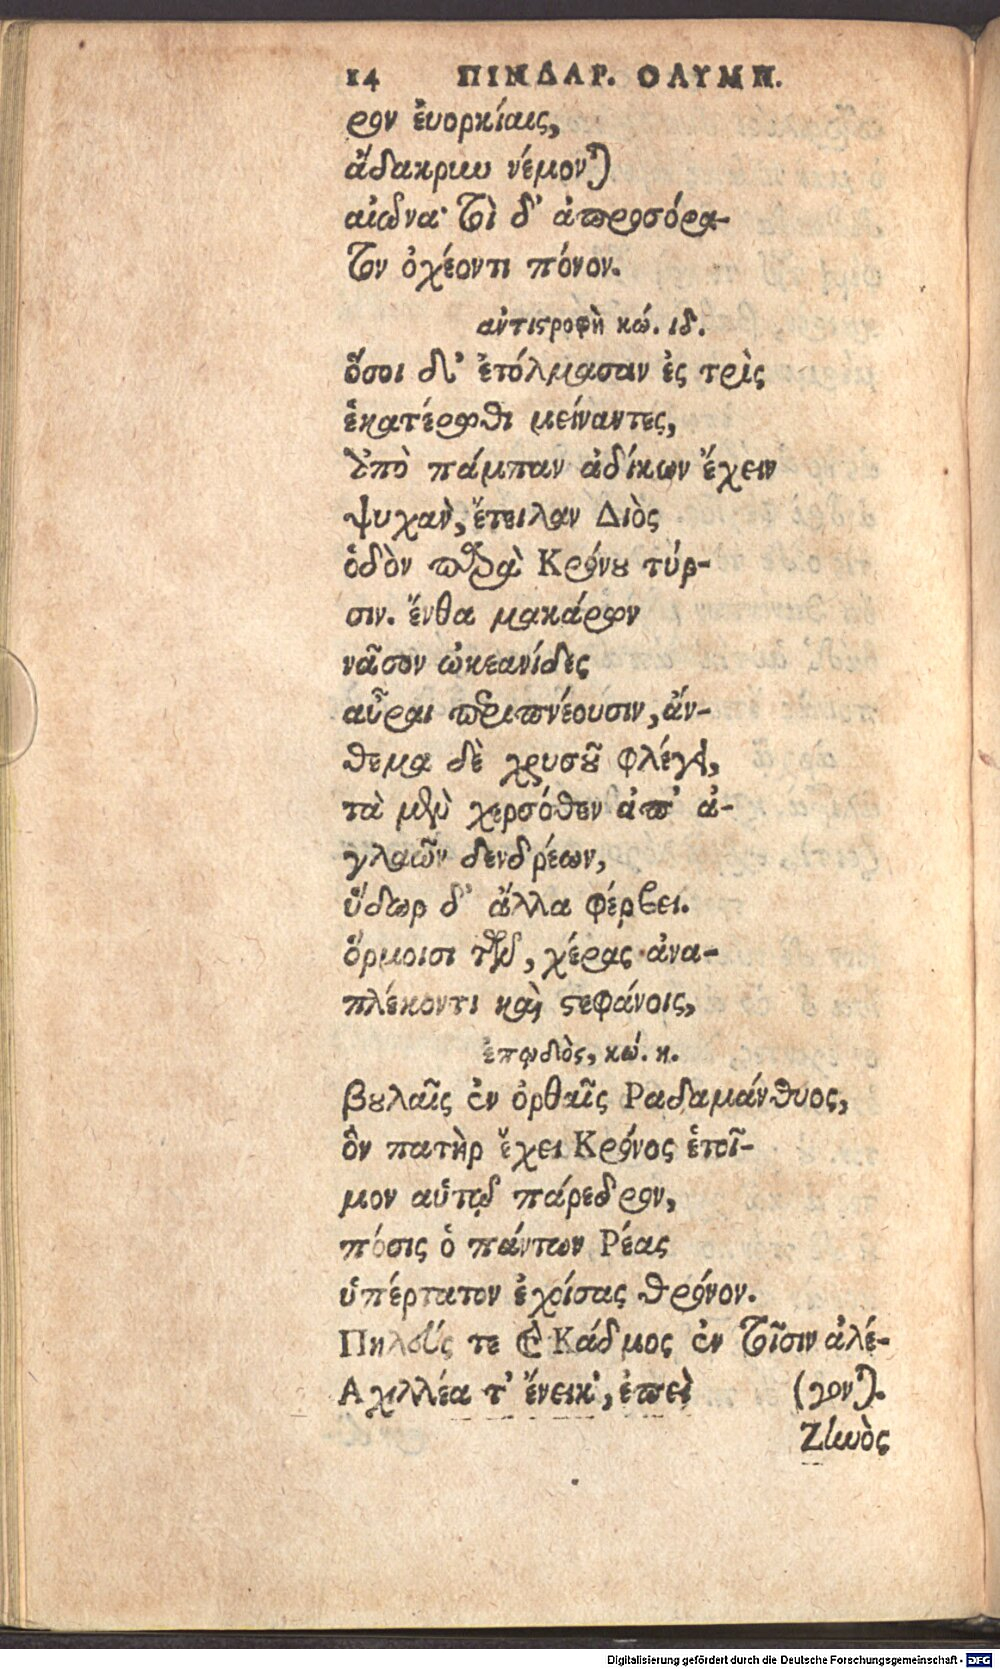 14 ΠΙΝΔΑΡ. ΟΛΥΜΠ.
ρον ἐυορκίαις,
ἄδακρυν νέμονται
αἰῶνα· τοὶ δ' ἀπροσόρα-
τον ὀχέοντι πόνον.
ἀντιστροφὴ κώ. ιδ.
ὅσοι δ' ἐτόλμασαν ἐς τρὶς
ἑκατέρωθι μείναντες,
ἀπὸ πάμπαν ἀδίκων ἔχειν
ψυχὰν, ἔτειλαν Διὸς
ὁδὸν παρὰ Κρόνου τύρ-
σιν. ἔνθα μακάρων
νᾶσον ὠκεανίδες
αὖραι περιπνέουσιν, ἄν-
θεμα δὲ χρυσοῦ φλέγει,
τὰ μὲν χερσόθεν ἀπ' ἀ-
γλαῶν δενδρέων,
ὕδωρ δ' ἄλλα φέρβει.
ὅρμοισι τῶν, χέρας ἀνα-
πλέκοντι καὶ στεφάνοις,
ἐπῳδὸς, κώ. κ.
βουλαῖς ἐν ὀρθαῖς Ραδαμάνθυος,
ὃν πατὴρ ἔχει Κρόνος ἑτοῖ-
μον αὑτῷ πάρεδρον,
πόσις ὁ πάντων Ρέας
ὑπέρτατον ἐχοίσας θρόνον.
Πηλεύς τε καὶ Κάδμος ἐν τοῖσιν ἀλέ-
Αχιλλέα τ' ἔνεικ', ἐπεὶ (γονται.
Ζἰωὸς
Digitalisierung gefördert durch die Deutsche Forschungsgemeinschaft - DFG